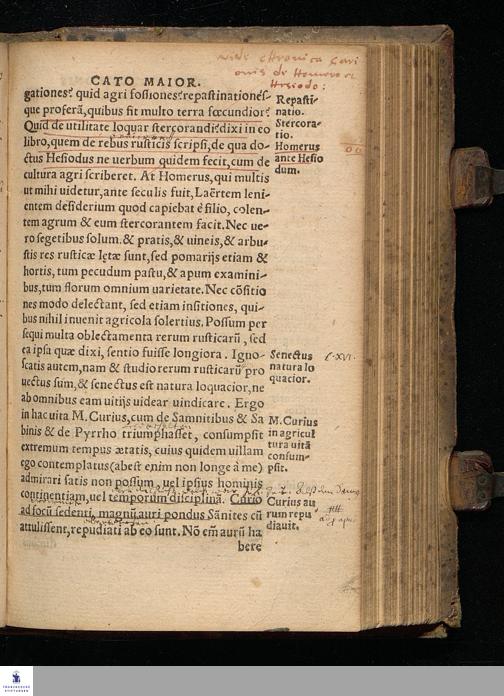 vide chronica Cari
onis de Homero et
Hesiodo:
CATO MAIOR.
gationes? quid agri fossiones? repastinationes-
que proferā, quibus fit multo terra fœcundior?
Quid de utilitate loquar stercorandi? dixi in eo
libro, quem de rebus rusticis scripsi, de qua do-
ctus Hesiodus ne uerbum quidem fecit, cum de
cultura agri scriberet. At Homerus, qui multis
ut mihi uidetur, ante seculis fuit, Laërtem leni-
entem desiderium quod capiebat è filio, colen-
tem agrum & eum stercorantem facit. Nec ue-
ro segetibus solum. & pratis, & uineis, & arbu-
stis res rusticæ lętæ sunt, sed pomarijs etiam &
hortis, tum pecudum pastu, & apum examini-
bus, tum florum omnium uarietate. Nec cōsitio
nes modo delectant, sed etiam insitiones, qui-
bus nihil inuenit agricola solertius. Possum per
sequi multa oblectamenta rerum rusticarū, sed
ea ipsa quæ dixi, sentio fuisse longiora. Igno-
scatis autem, nam & studio rerum rusticarū pro
uectus sum, & senectus est natura loquacior, ne
ab omnibus eam uitijs uidear uindicare. Ergo
in hac uita M. Curius, cum de Samnitibus & Sa
binis & de Pyrrho triumphasset, consumpsit
extremum tempus ætatis, cuius quidem uillam
ego contemplatus (abest enim non longe à me)
admirari satis non possum, uel ipsius hominis
continentiam, uel temporum disciplinā. Curio
ad focū sedenti, magnū auri pondus Sānites cū
attulissent, repudiati ab eo sunt. Nō em̄ aurū ha
bere
Repasti-
natio.
Stercora-
tio.
Homerus
ante Hesio
dum.
Senectus
natura lo
quacior.
C. XVI.
M. Curius
in agricul
tura uitā
consum-
psit.
Curius au
rum repu
diauit.
FRANCKESCHE
STIFTUNGEN